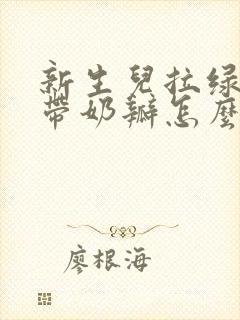 新生兒拉綠
帶奶瓣怎麼
廖根海